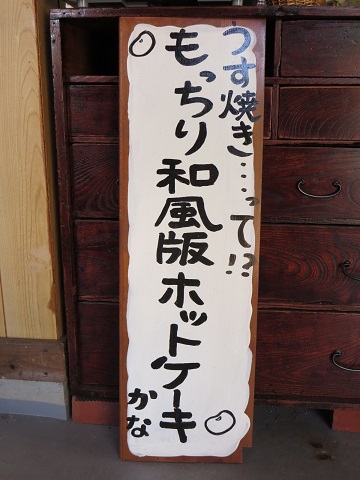 うす焼き…って!?
もっちり和風版ホットケーキ
かな